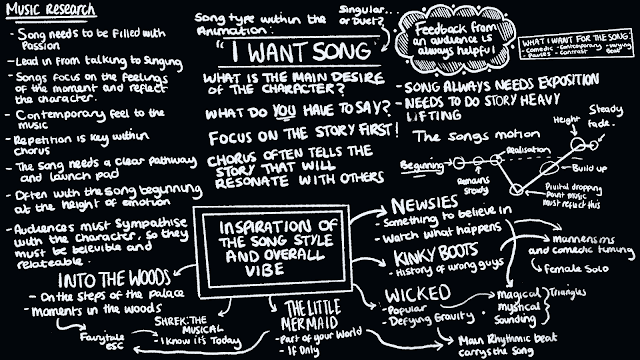 Music Research
- Song needs to be filled with
Passion
- Lead in from talking to Singing
- Songs focus on the feelings
of the moment and reflect
the character.
- Contemporary feel to the
music
- Repetition is key within
chorus
- The song needs a clear pathway
and launch pad
- Often with the song beginning
at the height of emotion
- Audiences must sympathise
with the character, so they
must be
relateable.
Song type within the
Animation:
Singular...
or Duet?
"I WANT SONG"
WHAT IS THE MAIN DESIRE
OF THE CHARACTER?
WHAT DO YOU HAVE TO SAY?
FOCUS ON THE STORY FIRST!
CHORUS OFTEN TELLS THE
STORY THAT WILL
RESONATE WITH OTHERS
Feedback from
an audience is
always helpful
WHAT I WANT FOR THE SONG:
- Comedic - Contemporary - Varying
- Pauses - Contrast
- SONG ALWAYS NEEDS EXPOSITION
- NEEDS TO DO STORY HEAVY
LIFTING
The songs motion
Height
Steady
fade.
Realisation
Beginning
Remains
Steady
Build up
Pivital dropping
Point music
must reflect this
INSPIRATION OF
THE SONG STYLE
AND OVERALL
VIBE
NEWSIES
- Something to believe in
- Watch what happens
KINKY BOOTS
- History of wrong guys
mannerisms
and comedic timing
Female Solo
WICKED
- Popular
- Defying Gravity
magical
mystical
Sounding
Triangles
Main Rhythmic beat
carries the song
THE LITTLE
MERMAID
- Part of your World
- If Only
SHREK: THE
MUSICAL
- I know it's Today
INTO THE WOODS
- On the steps of the palace
- Moments in the woods
Fairytale
esc